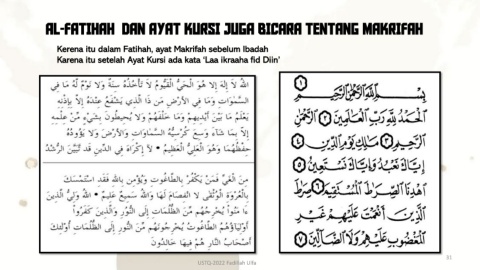 AL-FATIHAH DAN AYAT KURSI JUGA BICARA TENTANG MAKRIFAH
Kerena itu dalam Fatihah, ayat Makrifah sebelum Ibadah
Karena itu setelah Ayat Kursi ada kata ‘Laa ikraaha fid Diin’
اللهُ لاَ إِلَهَ إِلاَّ هُوَ الْحَيُّ الْقَيُّومُ لاَ تَأْخُذُهُ سِنَةٌ وَلاَ نَوْمٌ لَهُ مَا فِي
السَّمَوَاتِ وَمَا فِي الأَرْضِ مَن ذَا الَّذِي يَشْفَعُ عِنْدَهُ إِلاَّ بِإِذْنِهِ
يَعْلَمُ مَا بَيْنَ أَيْدِيهِمْ وَمَا خَلْفَهُمْ وَلاَ يُحِيطُونَ بِشَيْءٍ مِّنْ عِلْمِهِ
إِلاَّ بِمَا شَاءَ وَسِعَ كُرْسِيُّهُ السَّمَاوَاتِ وَالأَرْضَ وَلاَ يَؤُودُهُ
حِفْظُهُمَا وَهُوَ الْعَلِيُّ الْعَظِيمُ • لاَ إِكْرَاهَ فِي الدِّينِ قَد تَّبَيَّنَ الرُّشْدُ
مِنَ الْغَيِّ فَمَنْ يَكْفُرْ بِالطَّاغُوتِ وَيُؤْمِن بِاللهِ فَقَدِ اسْتَمْسَكَ
بِالْعُرْوَةِ الْوُثْقَى لاَ انفِصَامَ لَهَا وَاللهُ سَمِيعٌ عَلِيمٌ • اللهُ وَلِيُّ الَّذِينَ
ءَامَنُوا يُخْرِجُهُم مِّنَ الظُّلُمَاتِ إِلَى النُّورِ وَالَّذِينَ كَفَرُوا
أَوْلِيَاؤُهُمُ الطَّاغُوتُ يُخْرِجُونَهُم مِّنَ النُّورِ إِلَى الظُّلُمَاتِ أُوْلَئِكَ
أَصْحَابُ النَّارِ هُمْ فِيهَا خَالِدُونَ
١
بِسْمِ اللَّهِ الرَّحْمَٰنِ الرَّحِيمِ
الْحَمْدُ لِلَّهِ رَبِّ الْعَالَمِينَ ٢ الرَّحْمَٰنِ
الرَّحِيمِ ٣ مَالِكِ يَوْمِ الدِّينِ ٤
إِيَّاكَ نَعْبُدُ وَإِيَّاكَ نَسْتَعِينُ ٥
اهْدِنَا الصِّرَاطَ الْمُسْتَقِيمَ ٦ صِرَاطَ
الَّذِينَ أَنْعَمْتَ عَلَيْهِمْ غَيْرِ
الْمَغْضُوبِ عَلَيْهِمْ وَلَا الضَّالِّينَ ٧
USTQ-2022 Fadhlah Ulfa
31